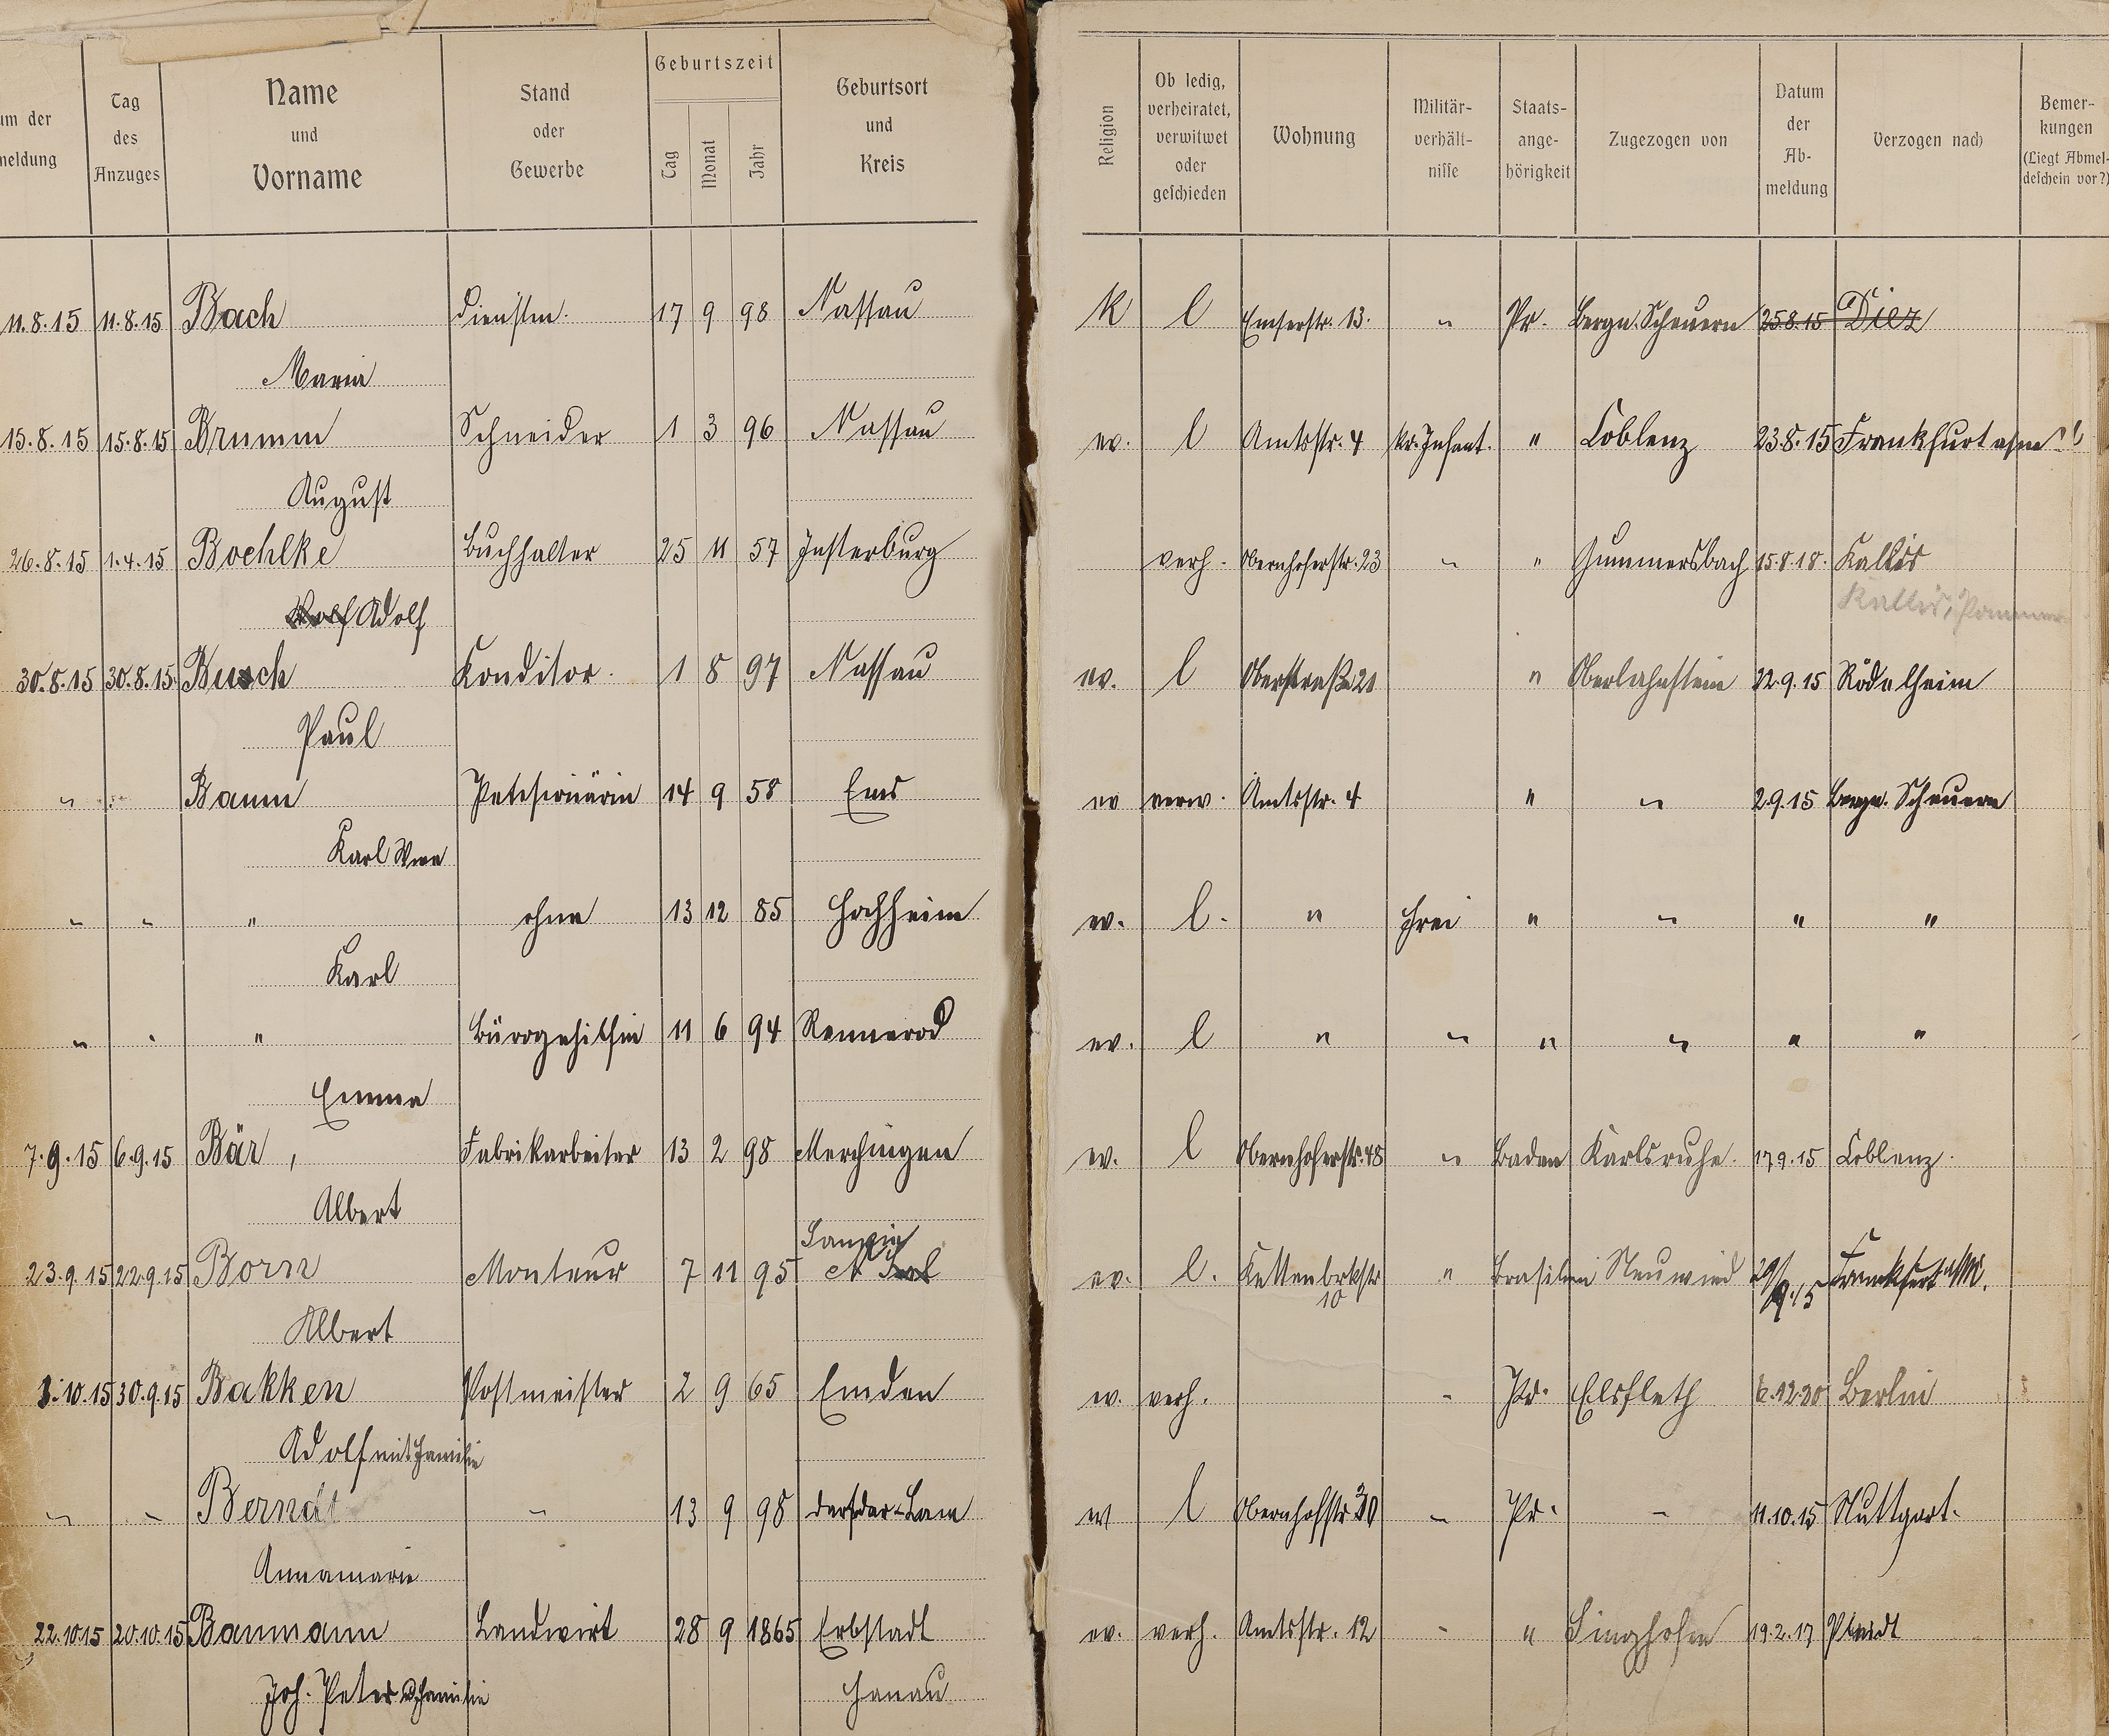 um der meldung | Tag des Anzuges | Name und Vorname | Stand oder Gewerbe | Geburtszeit Tag Monat Jahr | Geburtsort und Kreis | Religion | Ob ledig, verheiratet, verwitwet oder geschieden | Wohnung | Militär-verhält-nisse | Staats-ange-hörigkeit | Zugezogen von | Datum der Ab-meldung | Verzogen nach | Bemer-kungen (Liegt Abmel-deschein vor?)
11.8.15 11.8.15 Bach Dienstm. 17 9 98 Nassau K l Emserstr. 13. " Pr. Bergn. Scheuern 25.8.15 Diez
Maria
15.8.15 15.8.15 Brumm Schneider 1 3 96 Nassau ev. l Amtsstr. 4 Kr. Infant. " Coblenz 23.8.15 Frankfurt a/m
August
26.8.15 1.4.15 Boehlke Buchhalter 25 11 57 Insterburg verh. Obernhoferstr. 23 " " Gummersbach 15.8.18. Kallis
Adolf Kallis, Pommer
30.8.15 30.8.15 Busch Konditor. 1 8 97 Nassau ev. l Oberstraße 21 " Oberlahnstein 22.9.15 Rödelheim
Paul
" " Baum 14 9 58 Ems ev verw. Amtsstr. 4 " " 2.9.15 Bergn. Scheuern
Karl Wwe
" " " ohne 13 12 85 Hochheim ev. l. " frei " " " "
Karl
" " " Bürogehilfin 11 6 94 Rennerod ev. l " " " " " "
Emma
7.9.15 6.9.15 Bär, Fabrikarbeiter 13 2 98 Merchingen ev. l Obernhoferstr. 48 " Baden Karlsruhe. 17.9.15 Coblenz.
Albert
23.9.15 22.9.15 Born Monteur 7 11 95 ev. l. " Brasilien Neuwied 29/9.15 Frankfurt a/M.
10
Albert
1.10.15 30.9.15 Bakken Postmeister 2 9 65 Emden ev. verh. " Pr. Elsfleth 6.12.20 Berlin
Adolf mit Familie
" " Berndt " 13 9 98 ev l Obernhofstr " Pr. " 11.10.15 Stuttgart.
Annamarie
22.10.15 20.10.15 Baumann Landwirt 28 9 1865 Erbstadt ev. verh. Amtsstr. 12 " " Singhofen 19.2.17 Plaidt
Joh. Peter u. Familie Hanau